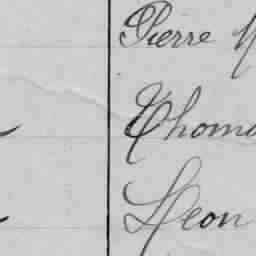 Pierre
Thoma
Leon